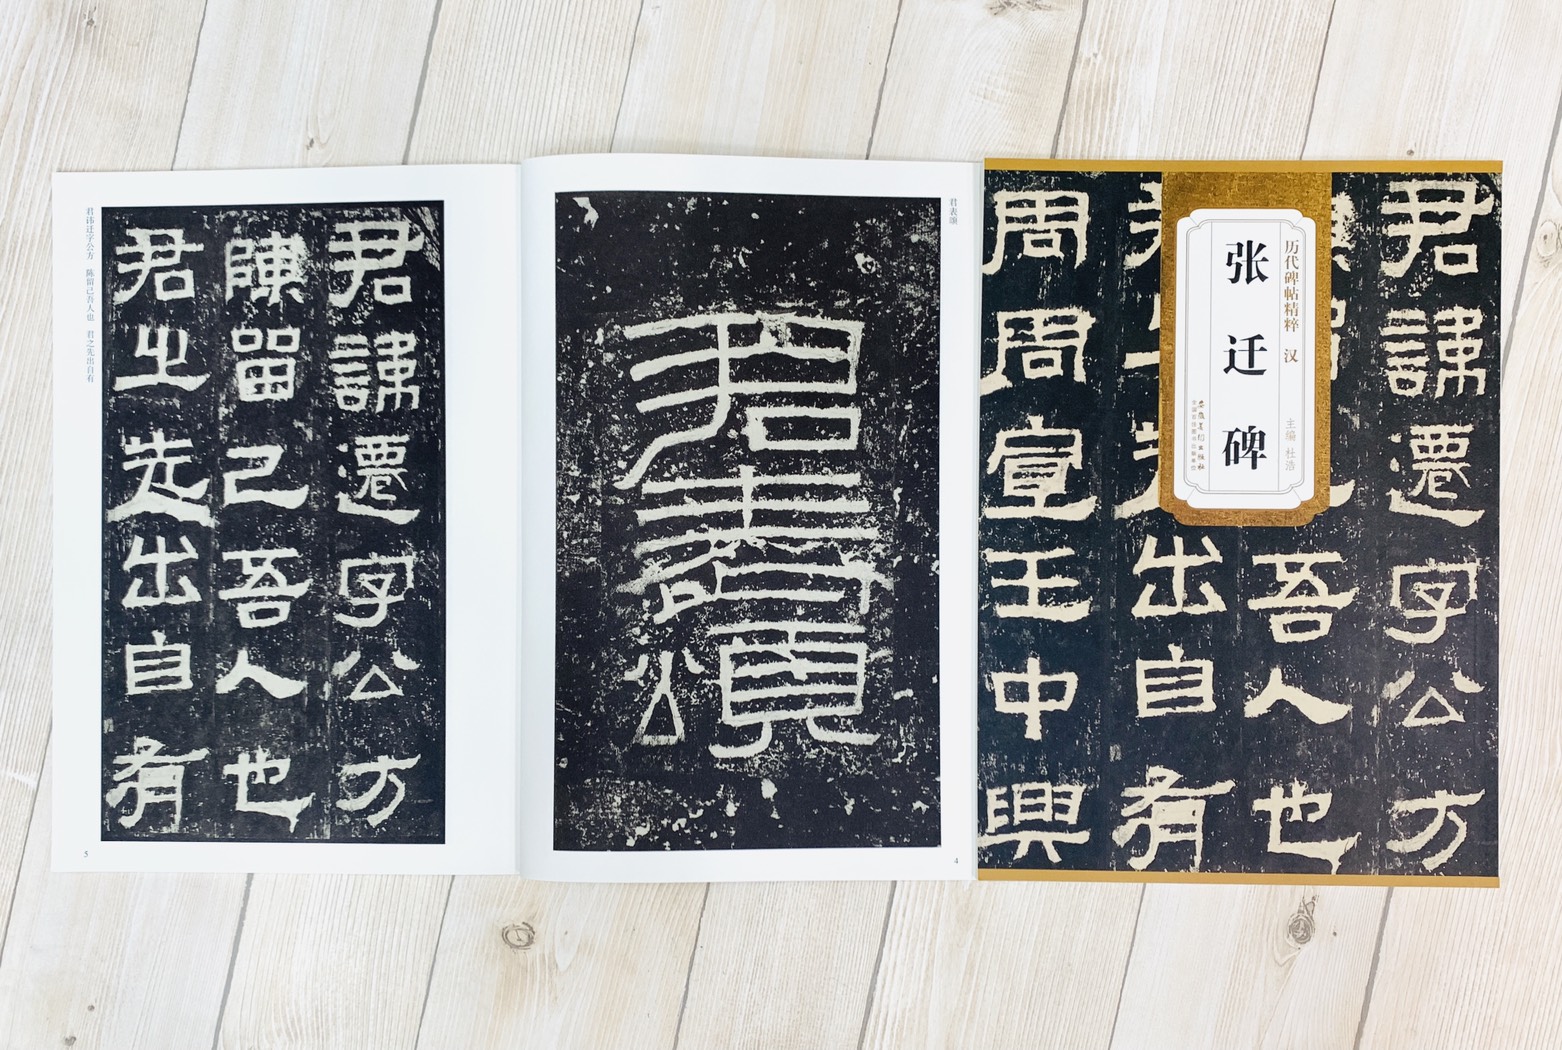 历代碑帖精粹 汉
张迁碑
主编 杜浩
安徽美术出版社
全国百佳图书出版单位
君諱遷字公方
吾人也
出自有
周周宣王中興
君表颂
君表頌
4
君諱遷字公方
陳留己吾人也
君之先出自有
君讳迁字公方 陈留己吾人也 君之先出自有
5